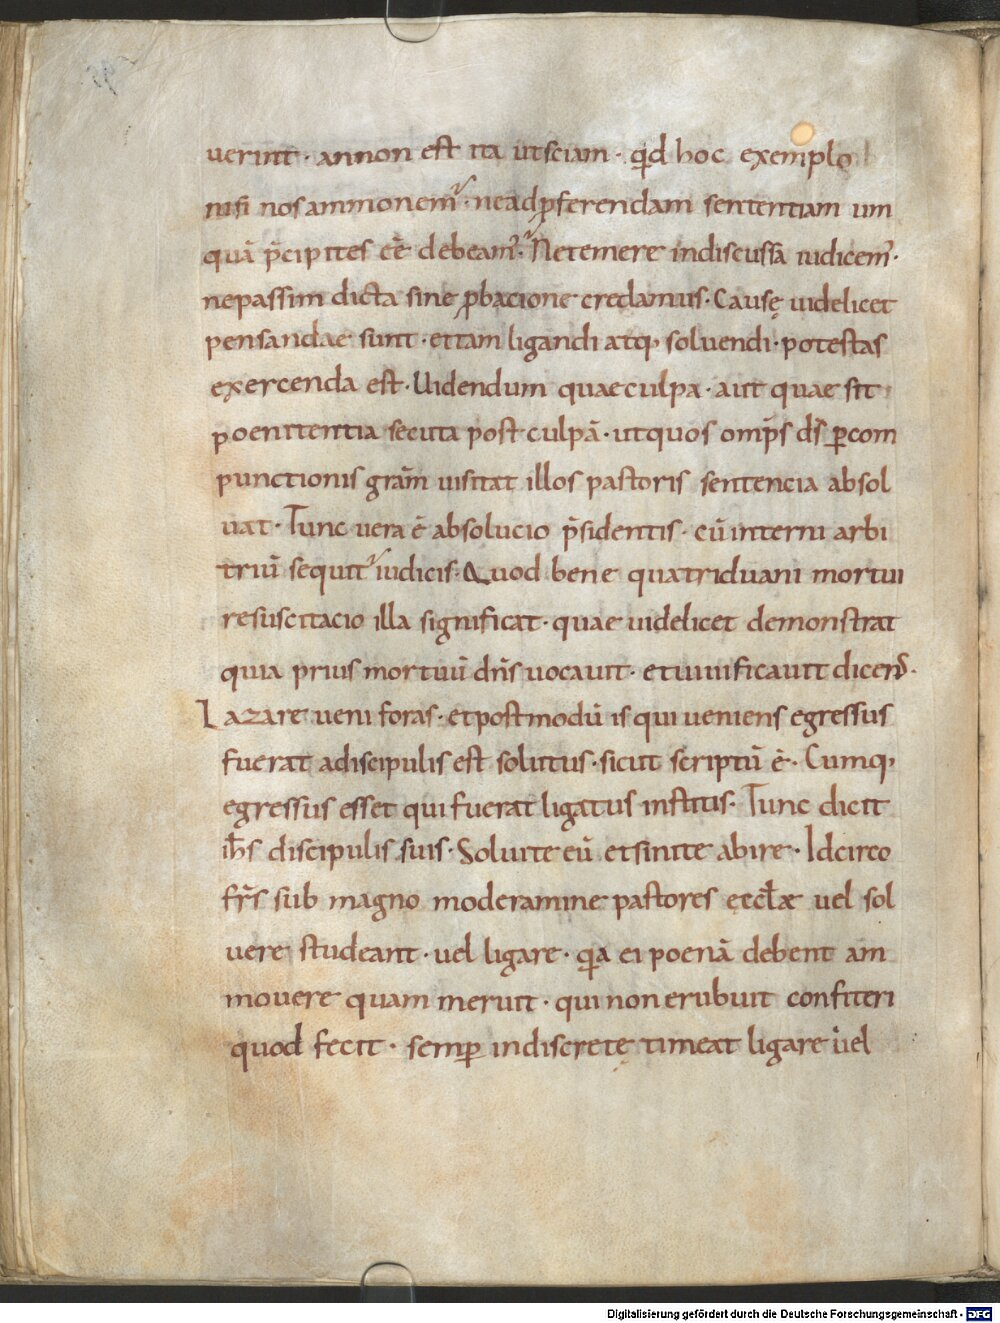 uerint · annon est ita utsciam · qd hoc exemplo
nisi nos ammonemr · neadpferendam sententiam um
quā p̄cipites eē debeamr̓ · Netemere indiscussa iudicem̓ ·
nepassim dicta sine pbacione credamus · Causę uidelicet
pensandae sunt · etiam ligandi atq; soluendi · potestas
exercenda est · Uidendum quae culpa · aut quae sit
poenitentia secuta post culpā · utquos omp̄s ds̄ ꝑcom
punctionis grām uisitat illos pastoris sentencia absol
uat · Tunc uera ē absolucio p̄sidentis · cū interni arbi
triū sequitr iudicis · Quod bene quatriduani mortui
resuscitacio illa significat · quae uidelicet demonstrat
quia prius mortuū dn̄s uocauit · etuiuificauit dicens̄ ·
Lazare ueni foras · etpostmodū is qui ueniens egressus
fuerat adiscipulis est solutus · sicut scriptū ē · Cumq;
egressus esset qui fuerat ligatus institis · Tunc dicit
ih̄s discipulis suis · Soluite eū etsinite abire · Idcirco
frs̄ sub magno moderamine pastores ęccłæ uel sol
uere studeant · uel ligare · qa ei poenā debent am
mouere quam meruit · qui non erubuit confiteri
quod fecit · semꝑ indiscretę timeat ligare uel
Digitalisierung gefördert durch die Deutsche Forschungsgemeinschaft - DFG